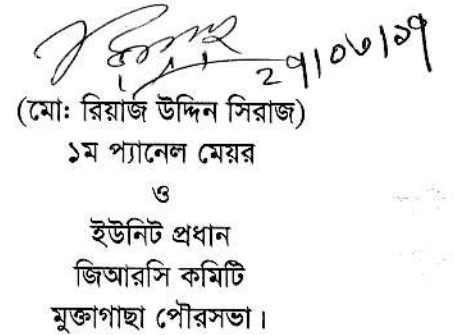 ২৭/০৬/১৭
(মো: রিয়াজ উদ্দিন সিরাজ)
১ম প্যানেল মেয়র
ও
ইউনিট প্রধান
জিআরসি কমিটি
মুক্তাগাছা পৌরসভা।